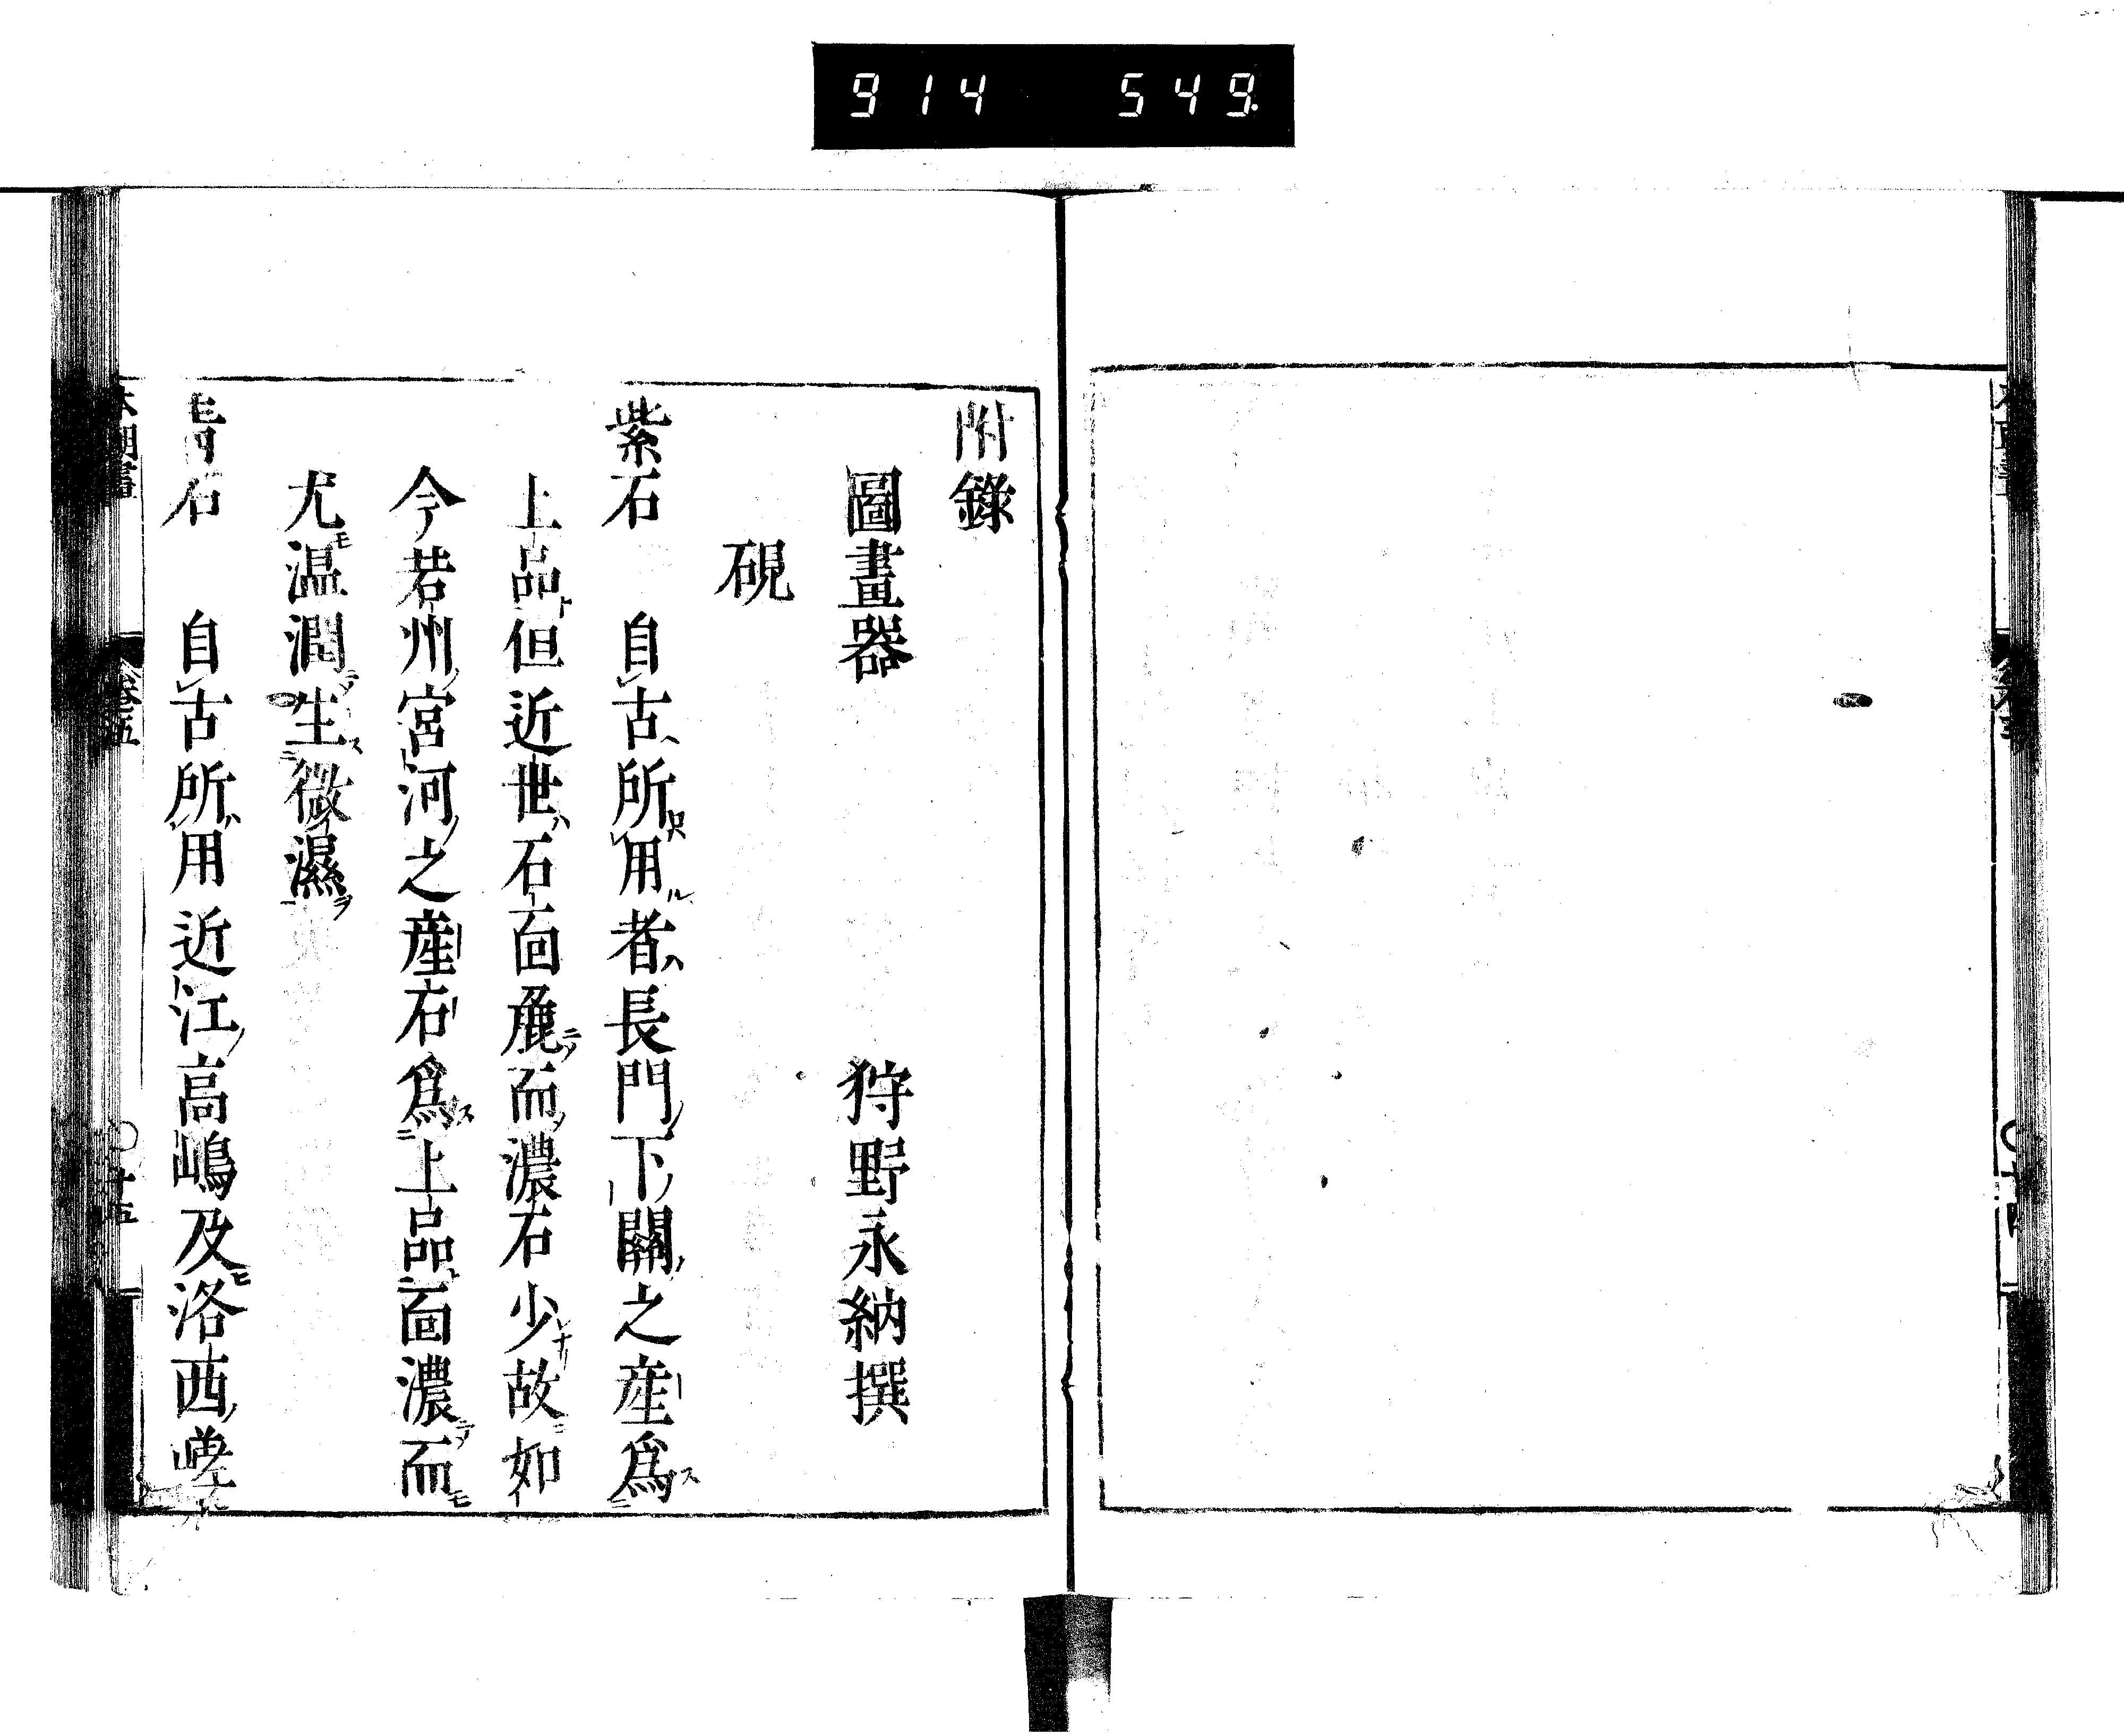 914 549
附錄
圖畫器 狩野永納撰
硯
紫石 自古所用者長門下關之產爲
上品但近世石面麁而濃石少故如
今若州宮河之產石爲上品面濃而
尤温潤生微濕
青石 自古所用近江高嶋及洛西嵯